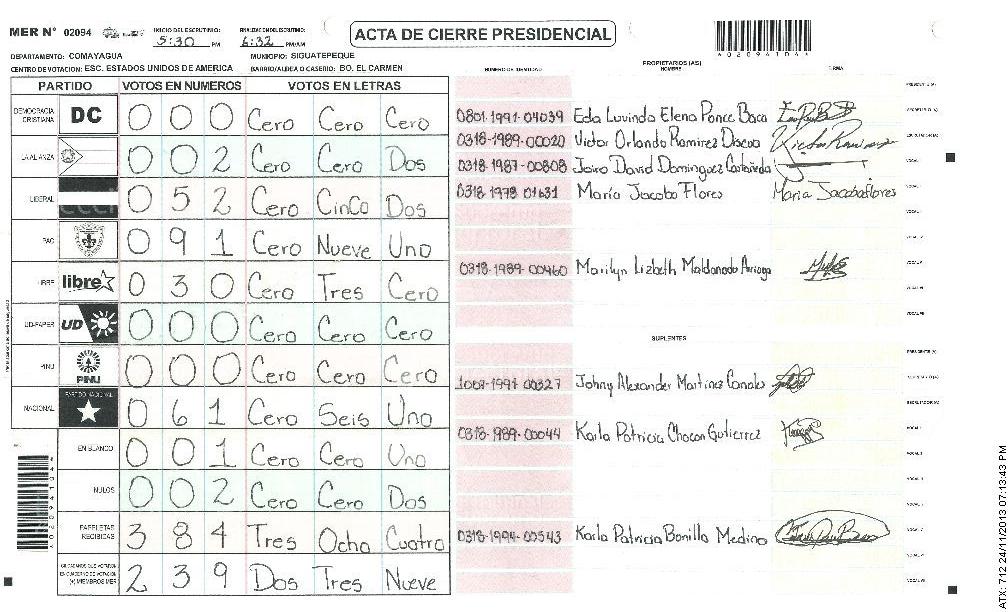 MER N° 02094
INICIO DEL ESCRUTINIO: 5:30 PM
FINALIZACION DEL ESCRUTINIO: 6:32 PM/AM
ACTA DE CIERRE PRESIDENCIAL
DEPARTAMENTO: COMAYAGUA MUNICIPIO: SIGUATEPEQUE
CENTRO DE VOTACION: ESC. ESTADOS UNIDOS DE AMERICA BARRIO/ALDEA O CASERIO: BO. EL CARMEN
PARTIDO VOTOS EN NUMEROS VOTOS EN LETRAS
DEMOCRACIA CRISTIANA DC 0 0 0 Cero Cero Cero
LA ALIANZA 0 0 2 Cero Cero Dos
LIBERAL 0 5 2 Cero CinCo Dos
PAC 0 9 1 Cero Nueve Uno
LIBRE libre 0 3 0 Cero Tres Cero
UD-FAPER UD 0 0 0 Cero Cero Cero
PINU PINU 0 0 0 Cero Cero Cero
NACIONAL PARTIDO NACIONAL 0 6 1 Cero Seis Uno
EN BLANCO 0 0 1 Cero Cero Uno
NULOS 0 0 2 Cero Cero Dos
PAPELETAS RECIBIDAS 3 8 4 Tres Ocho Cuatro
CIUDADANOS QUE VOTARON EN CUADERNO DE VOTACION (+) MIEMBROS MER 2 3 9 Dos Tres Nueve
NUMERO DE IDENTIDAD PROPIETARIOS (AS) NOMBRE FIRMA
PRESIDENTE (A)
0801-1991-04039 Eda Luvinda Elena Ponce Baca SECRETARIO (A)
0318-1989-00020 Victor Orlando Ramirez Discua
0318-1987-00808 Jairo David Dominguez Castañeda VOCAL I
0318 1978 01631 Maria Jacoba Flores Maria Jacoba flores
0318-1989-00460 Marilyn Lizbeth Maldonado Arriaga
SUPLENTES
PRESIDENTE (A)
Johny Alexander Martinez Canales
0318-1989-00044 Karla Patricia Chacon Gutierrez
0318-1994-00543 Karla Patricia Bonilla Medina
4020941042
ATX: 712 24/11/2013 07:13:43 PM